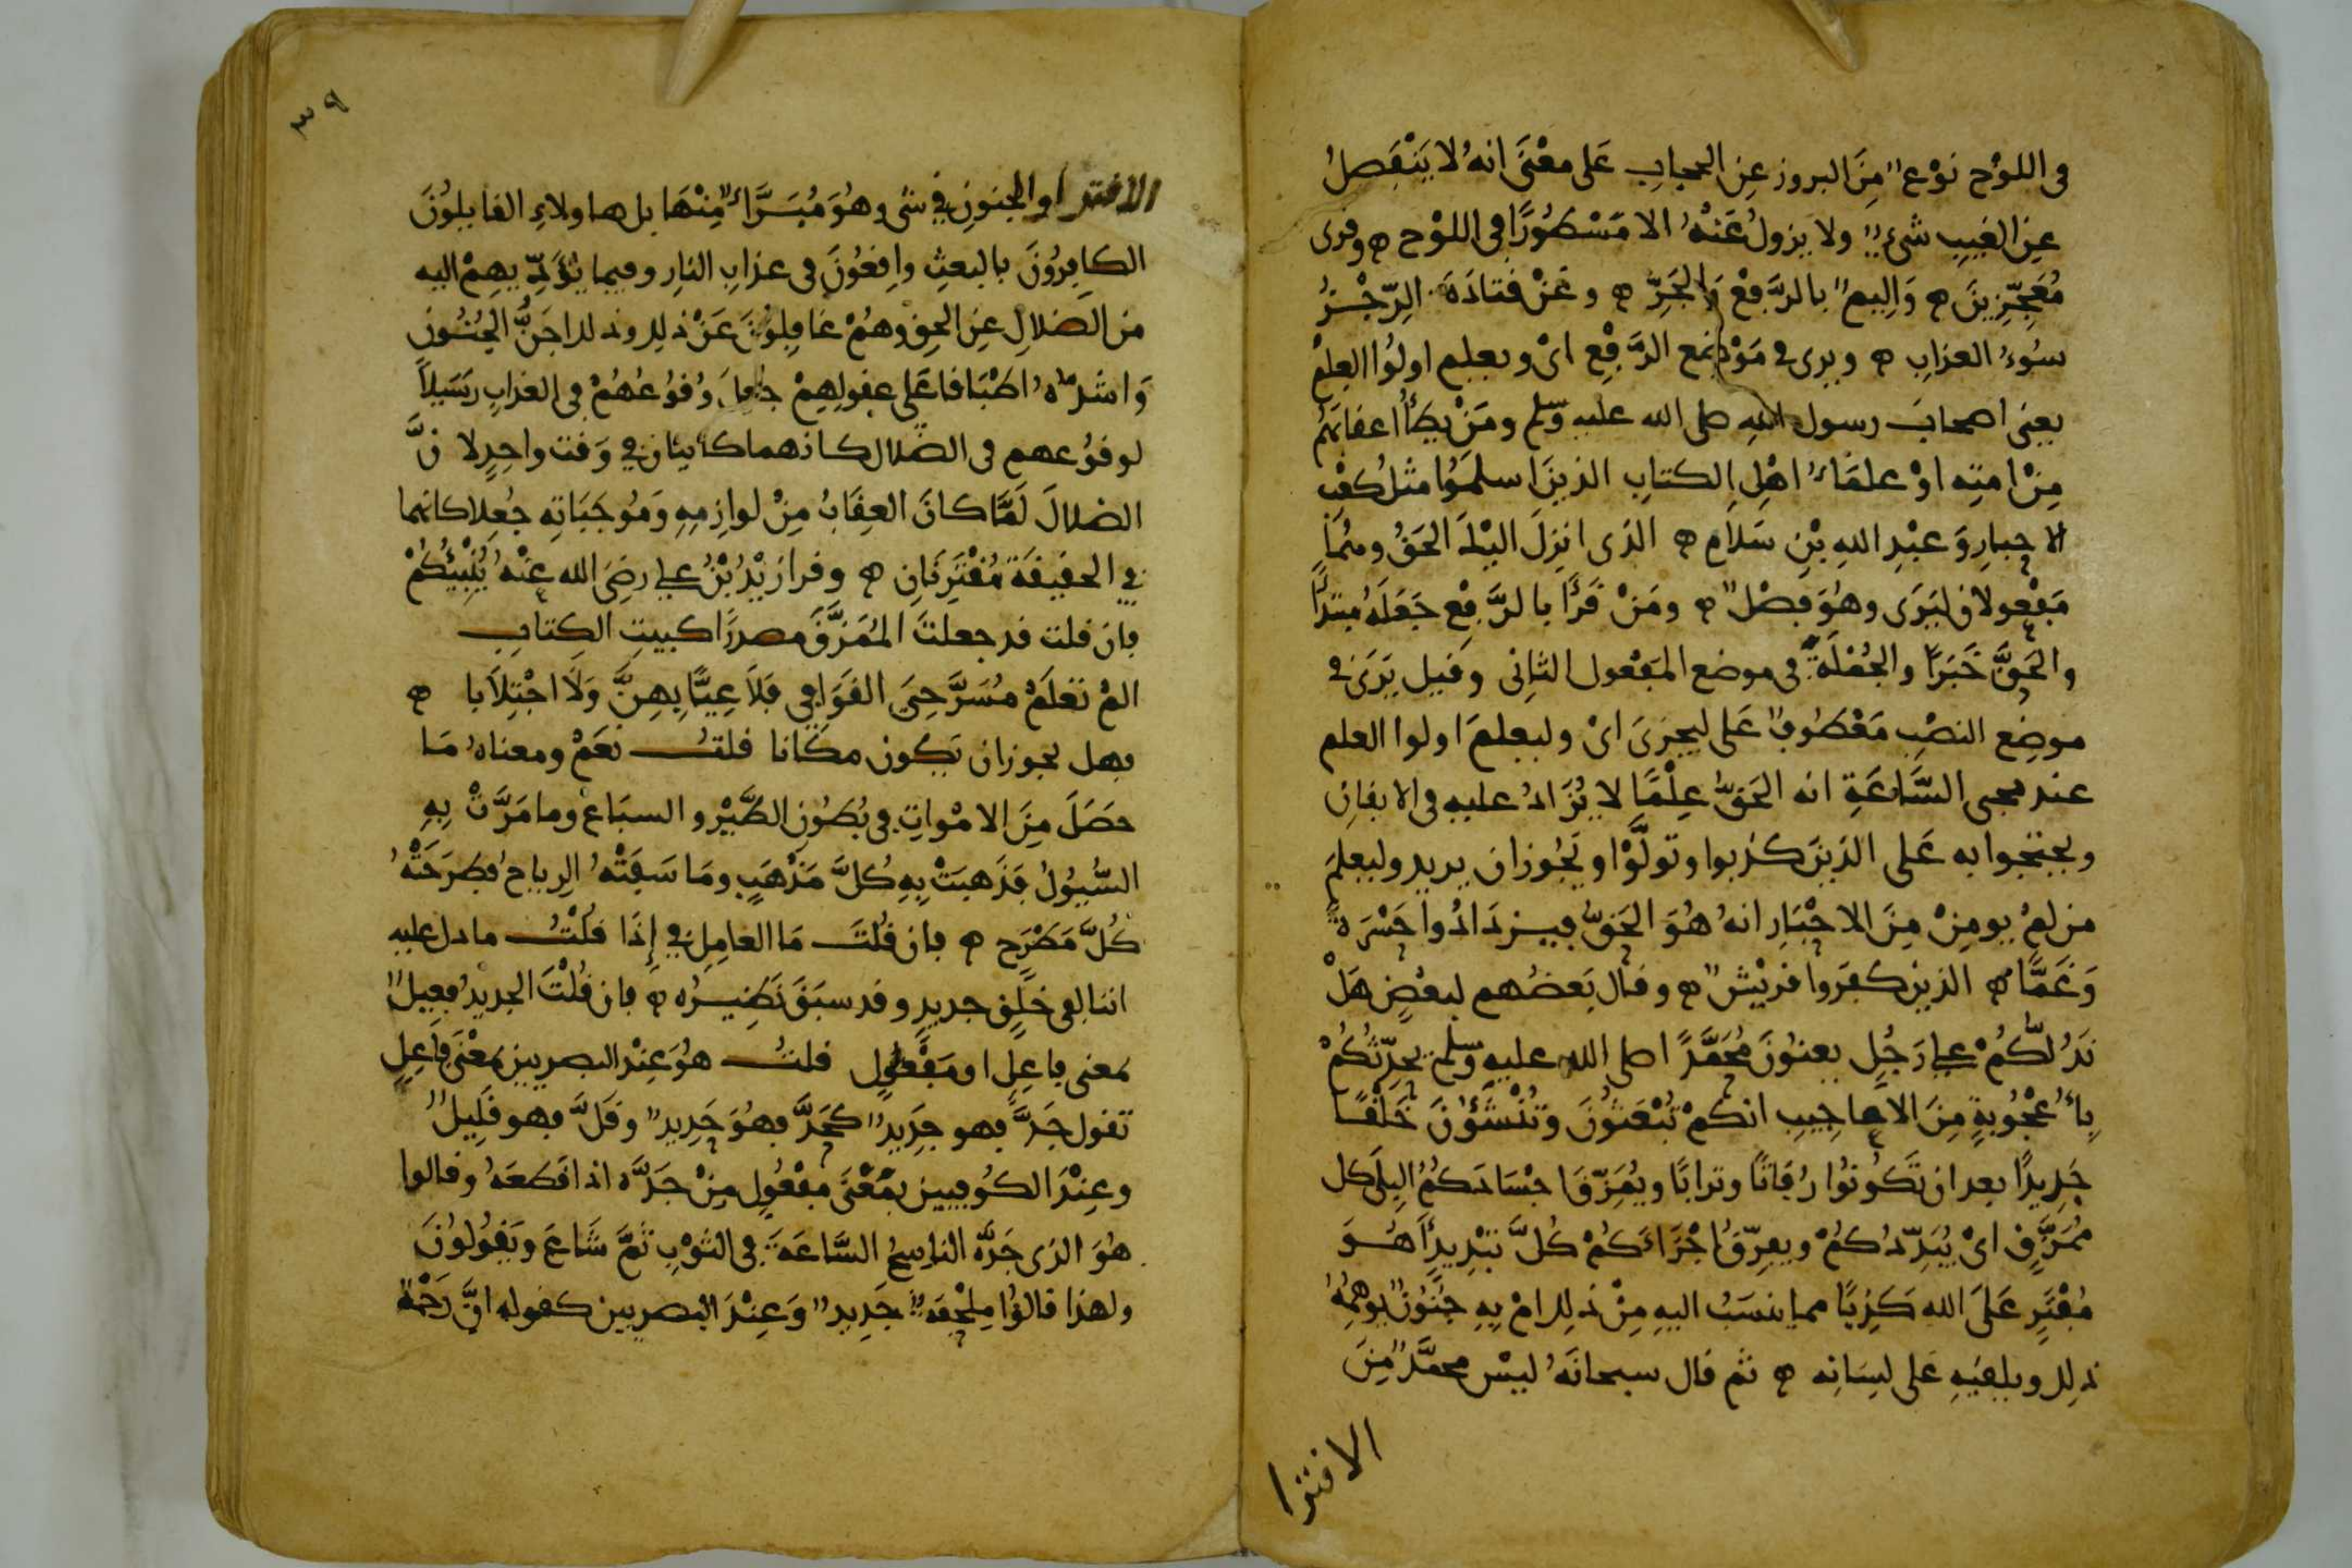 فى اللوْح نوْع مِنَ البروز عنِ الحجابِ عَلى معْنَى انهُ لا يَنْفَصِلُ
عنِ الغيبِ شىءٌ ولا يزولُ عَنْهُ الا مَسْطُورًا فى اللوْح ه وقرى
مُعَجِّزِينَ ه وَاليم بالرَّفِعْ والجَرِّ ه وعَنْ قتادَةَ الرّجْزُ
سُوءُ العذابِ ه ويرى فى مَوْضع الرَّفِعْ اىْ ويعلم اولُوا العِلمِ
يعنى اصحابَ رسول اللهِ صلى الله عليه وسلم ومَنْ يطَأُ اعقابَهُم
مِنْ امتِه اوْ علمَاءُ اهْلِ الكتابِ الذينَ اسلمَوُا مثلُ كعْبِ
الاحبارِ وَعبْدِ اللهِ بْنِ سَلامٍ ه الذى انزِلَ اليْكَ الحَقُ وهُمَا
مَفْعولانِ ليَرَى وهُوَ فصْل ه ومَنْ قَرَأَ بالرَّفِعْ جَعَلَهُ مبتدأً
والحَقَّ خَبَرًا والجُمْلَةَ فى موضع المفْعول الثانِى وقيل يَرَى فى
موضِع النصْبِ مَعْطوفٌ عَلى ليجزىَ اىْ وليعلمَ اولوا العلم
عند مجى السَّاعَةِ انه الحَقُّ عِلْمًا لا يُزَادُ عليه فى الايقانِ
ويحتجوا به عَلى الذينَ كذبوا وتولَّوْا ويَجُوز ان يريد وليعلمَ
من لمْ يومِنْ مِنَ الاحْبَارِ انهُ هُوَ الحَقُّ فيزدَادُوا حَسْرَةً
وَغَمًّا ه الذين كفَروا قريْش ه وقال بَعضُهم لبعْضٍ هَلْ
نَدُلُّكُمْ على رَجُلٍ يعنوُنَ مُحَمَّدًا صلى الله عليه وسلم يحدِّثُكُمْ
بأُعْجُوبةٍ مِنَ الاعاجيبِ انكمْ تُبْعَثُونَ وتُنْشَؤُنَ خَلْقًا
جَدِيدًا بعد ان تَكُونوُا رُفَاتًا وترابًا ويُمَزِّقَ اجْسَادَكمُ البِلَى كل
مُمَزَّقٍ اىْ يُبَدِّدُكُمْ ويفرِّقُ اجْزَاءَكُمْ كُلَّ تَبْدِيدٍ أَهُوَ
مُفْتَرٍ عَلَى اللهِ كَذِبًا مما ينسَبُ اليهِ مِنْ ذلك امْ بِهِ جُنُونٌ يوهمُهُ
ذلك ويلقيهِ عَلى لسِانِه ه ثم قال سبحانَهُ ليْس محمَّد مِنَ
الافترا
٣٩
الافترا والجنونِ فى شى وهُوَ مُبَرَّاءٌ مِنْهَا بل هاولاءِ القايلوُنَ
الكافِرُونَ بالبعثِ واقِعُونَ فى عذابِ النارِ وفيما يؤدّيهِمْ اليه
من الضلالِ عنِ الحقِ وهُمْ غافِلوُنَ عَنْ ذلك وذلك اجَنُّ الجُنُونِ
وَاشدُّهُ اطْبَاقا عَلى عقولِهِمْ جعلَ وُقوُعُهُمْ فى العذابِ رَسَيلاً
لوقوُعهم فى الضلال كانهما كاينان فى وَقت واحِدٍ لانَّ
الضلالَ لَمَّا كانَ العِقَابُ مِنْ لوازِمِهِ وَمُوجَبَاتِهِ جُعِلا كانهما
فى الحقيقةِ مُقْتَرِنَانِ ه وقرا زيْدُ بْنُ على رضِىَ الله عنْهُ يُنْبِيُكُمْ
فان قلت قد جعلتَ المُمَزَّقَ مصدرًا كبيتِ الكِتابِ
المْ تعْلَمْ مُسَرَّحِىَ القَوَافِى فَلاَ عِيًّا بِهِنَّ وَلاَ اجْتِلاَبا ه
فهل يجوز ان يَكون مكانا قلتُ نعَمْ ومعناهُ مَا
حصَلَ مِنَ الامْواتِ فى بُطُونِ الطَّيْرِ والسبَاعِ وما مَرَّتْ بِهِ
السُّيُولُ فذَهبَتْ بِهِ كُلَّ مَذْهَبٍ ومَا سَفَتْهُ الرياحُ فطرَحَتْهُ
كُلَّ مَطْرَحٍ ه فان قلْتَ مَا العامِل فى إذَا قلْتُ ما دل عليه
اننا لفى خلْقٍ جديدٍ وقد سبَقَ نَظِيرُه ه فان قُلْتَ الجديدُ فعِيلٌ
بمعنى فاعِلٍ او مَفْعُولٍ قلتُ هوَ عِنْد البصريين بمَعْنَى فَاعِلٍ
تقول جَدَّ فهو جدِيد كحَدَّ فهُوَ حَدِيد وقَلَّ فهو قَلِيلٌ
وعِنْدَ الكُوفيين بمَعْنَى مفْعُولٍ مِنْ جَدَّه اذا قطعَهُ وقالوا
هُوَ الذى جَدَّهُ الناسِجُ السَّاعَةَ فى الثوْبِ ثمَّ شَاعَ ويَقُولوُنَ
ولهذا قالوُا مِلْحَفَة جَدِيد وَعِنْدَ البصريين كقوله انَّ رَحْمَةَ